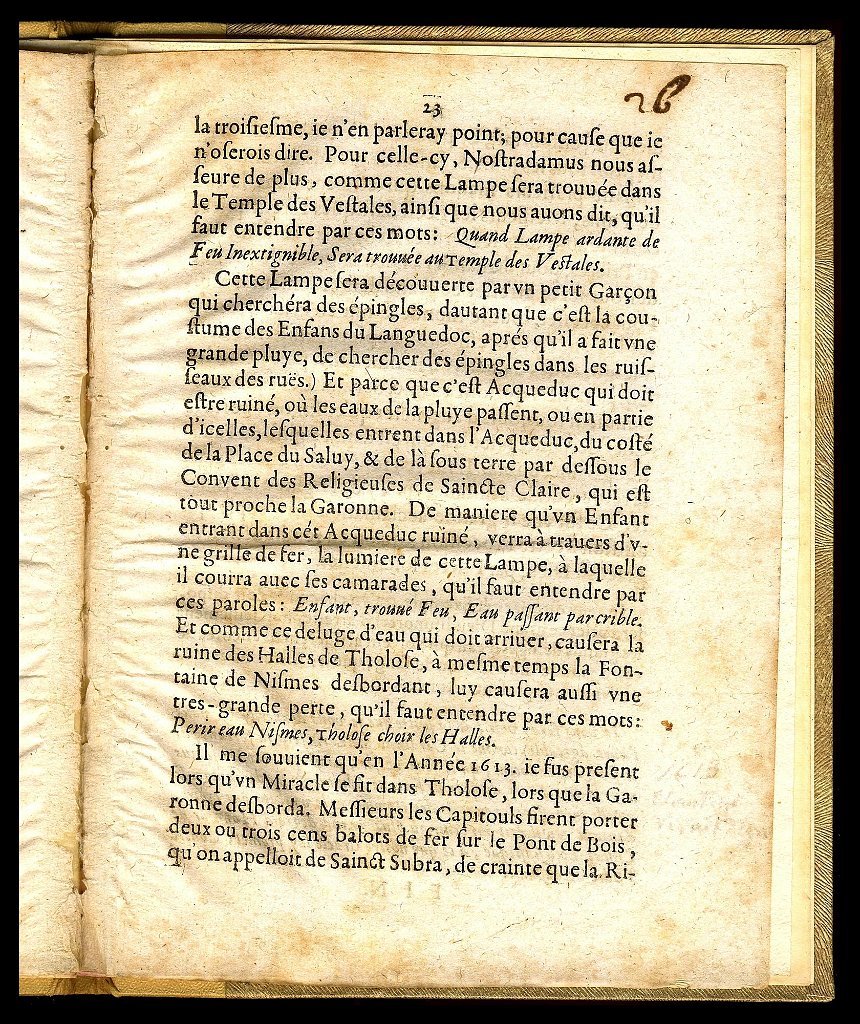 23
26
la troiſieſme, ie n'en parleray point, pour cauſe que ie
n'oſerois dire. Pour celle-cy, Noſtradamus nous aſ-
ſeure de plus, comme cette Lampe ſera trouuée dans
le Temple des Veſtales, ainſi que nous auons dit, qu'il
faut entendre par ces mots: Quand Lampe ardante de
Feu Inextignible, Sera trouuée au Temple des Veſtales.
Cette Lampe ſera découuerte par vn petit Garçon
qui cherchéra des épingles, dautant que c'eſt la cou-
ſtume des Enfans du Languedoc, aprés qu'il a fait vne
grande pluye, de chercher des épingles dans les ruiſ-
ſeaux des ruës.) Et parce que c'eſt Acqueduc qui doit
eſtre ruiné, où les eaux de la pluye paſſent, ou en partie
d'icelles, leſquelles entrent dans l'Acqueduc, du coſté
de la Place du Saluy, & de là ſous terre par deſſous le
Convent des Religieuſes de Saincte Claire, qui eſt
tout proche la Garonne. De maniere qu'vn Enfant
entrant dans cét Acqueduc ruiné, verra à trauers d'v-
ne grille de fer, la lumiere de cette Lampe, à laquelle
il courra auec ſes camarades, qu'il faut entendre par
ces paroles: Enfant, trouué Feu, Eau paſſant par crible.
Et comme ce deluge d'eau qui doit arriuer, cauſera la
ruine des Halles de Tholoſe, à meſme temps la Fon-
taine de Niſmes desbordant, luy cauſera auſſi vne
tres-grande perte, qu'il faut entendre par ces mots:
Perir eau Niſmes, Tholoſe choir les Halles.
Il me ſouuient qu'en l'Année 1613. ie fus preſent
lors qu'vn Miracle ſe fit dans Tholoſe, lors que la Ga-
ronne desborda. Meſſieurs les Capitouls firent porter
deux ou trois cens balots de fer ſur le Pont de Bois,
qu'on appelloit de Sainct Subra, de crainte que la Ri-